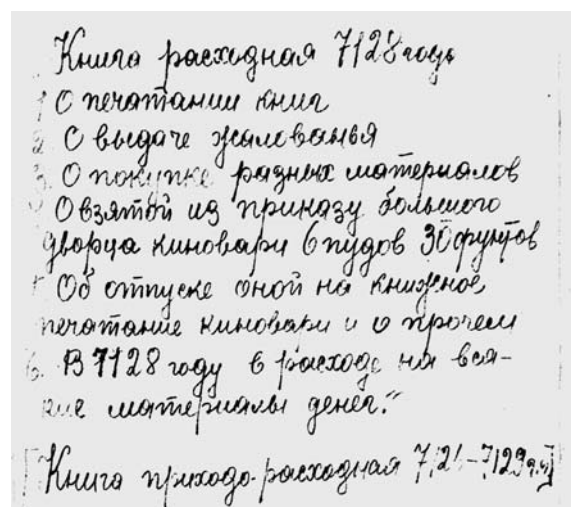 Книга расходная 7128 году
1 О печатании книг
2 О выдаче жалованья
3. О покупке разных материалов
О взятой из приказу большого
дворца киновари 6 пудов 30 фунтов
Об отпуске оной на книжное
печатание киновари и о прочем
6. В 7128 году в расходе на вся-
кие материалы денег."
[Книга приходо-расходная